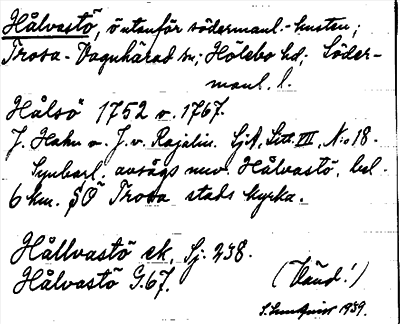 Hålvastö, ö utanför södermanl.-kusten;
Trosa-Vagnhärad sn; Hölebo hd; Söder-
manl. l.
Hålsö 1752 o. 1767.
J. Hahn o. J. v. Rajalin. SjA, Litt. III, No 18.
Synbarl. avsägs nuv. Hålvastö, bel.
6 km. SÖ Trosa stads kyrka.
Hållvastö ek, Sj. 238.
Hålvastö G. 67.
(Vänd!)
S. Lundqvist 1939.